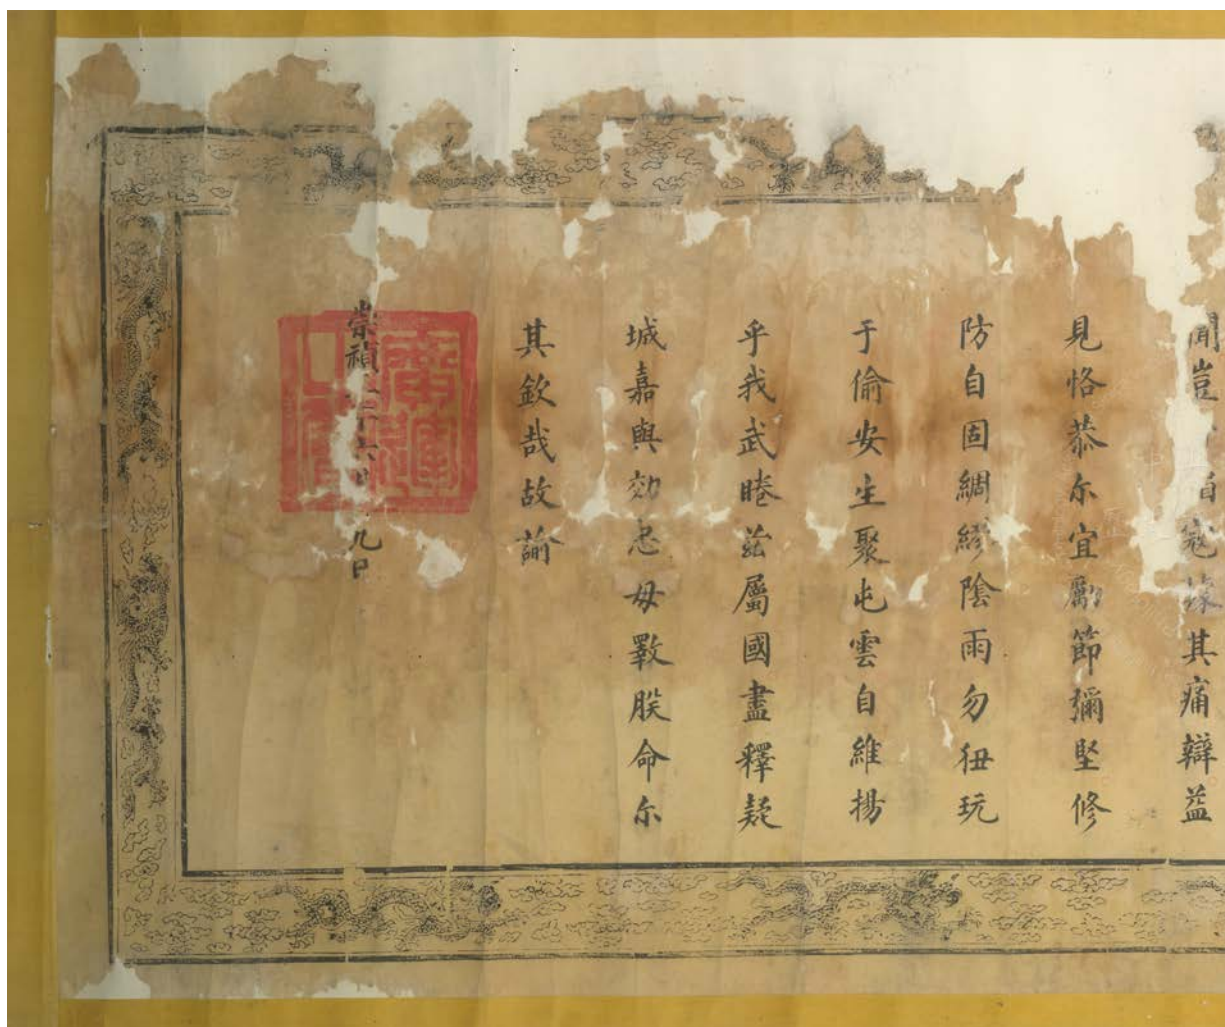 聞豈 自寃掾其痛辯益
見恪恭尓宜勵節彌堅修
防自固綢繆陰雨勿狃玩
于偷安生聚屯雲自維揚
乎我武睠茲屬國盡釋疑
堿嘉與効忠毋斁朕命尓
其欽哉故諭
崇禎 年六月 九日
廣運之寳